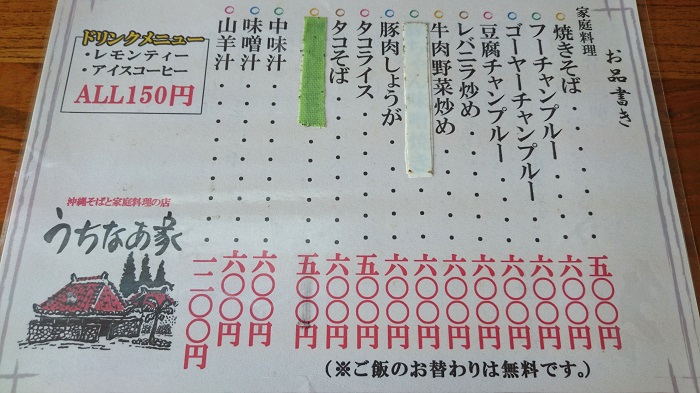 お品書き
家庭料理
焼きそば・・・・・・五〇〇円
フーチャンプルー・・・六〇〇円
ゴーヤーチャンプルー・・六〇〇円
豆腐チャンプルー・・・六〇〇円
レバニラ炒め・・・・・六〇〇円
牛肉野菜炒め・・・・・六〇〇円
六〇〇円
豚肉しょうが・・・・・六〇〇円
タコライス・・・・・・五〇〇円
タコそば・・・・・・・六〇〇円
五〇〇円
中味汁・・・・・・・・六〇〇円
味噌汁・・・・・・・・六〇〇円
山羊汁・・・・・・・・一二〇〇円
(※ご飯のお替わりは無料です。)
ドリンクメニュー
・レモンティー
・アイスコーヒー
ALL150円
沖縄そばと家庭料理の店
うちなあ家